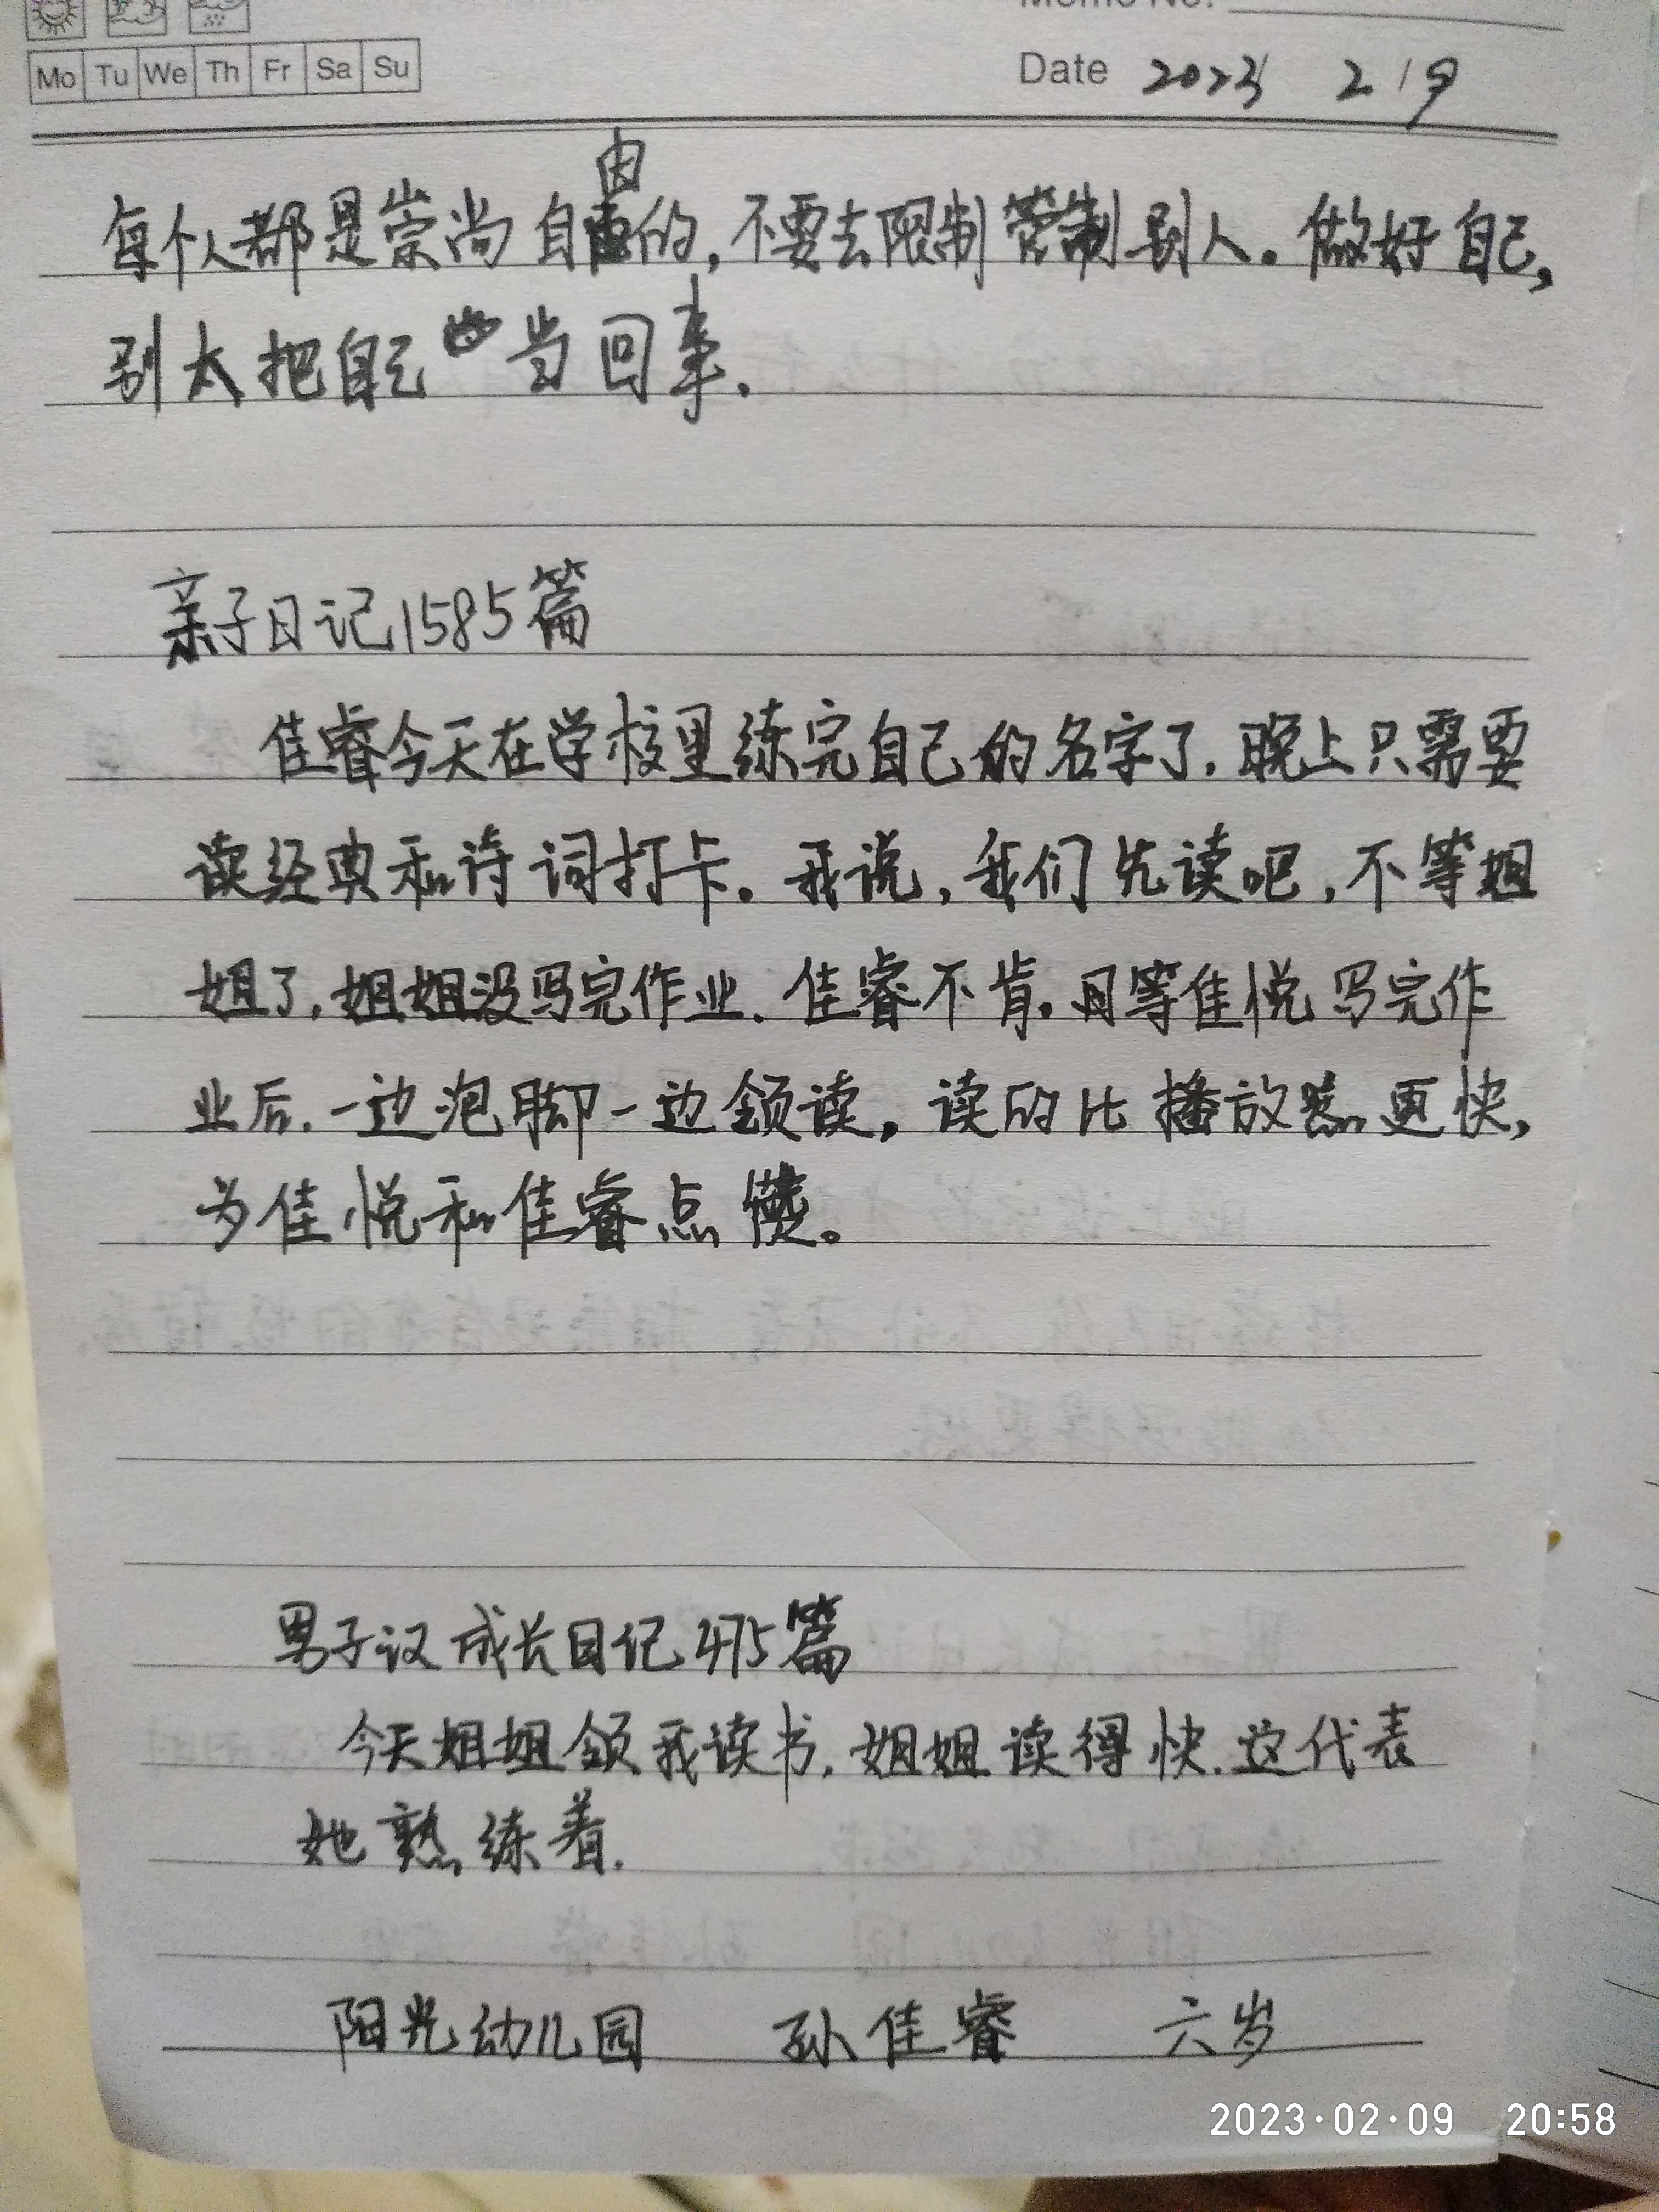 Memo No.
Mo Tu We Th Fr Sa Su
Date 2023 2/9
每个人都是崇尚自由的,不要去限制管制别人。做好自己,
别太把自己当回事.
亲子日记1585篇
佳睿今天在学校里练完自己的名字了.晚上只需要
读经典和诗词打卡。我说,我们先读吧,不等姐
姐了.姐姐没写完作业.佳睿不肯。等佳悦写完作
业后.一边泡脚一边领读,读的比播放更快,
为佳悦和佳睿点赞。
男子汉成长日记475篇
今天姐姐领我读书.姐姐读得快.这代表
她熟练着.
阳光幼儿园 孙佳睿 六岁
2023·02·09 20:58